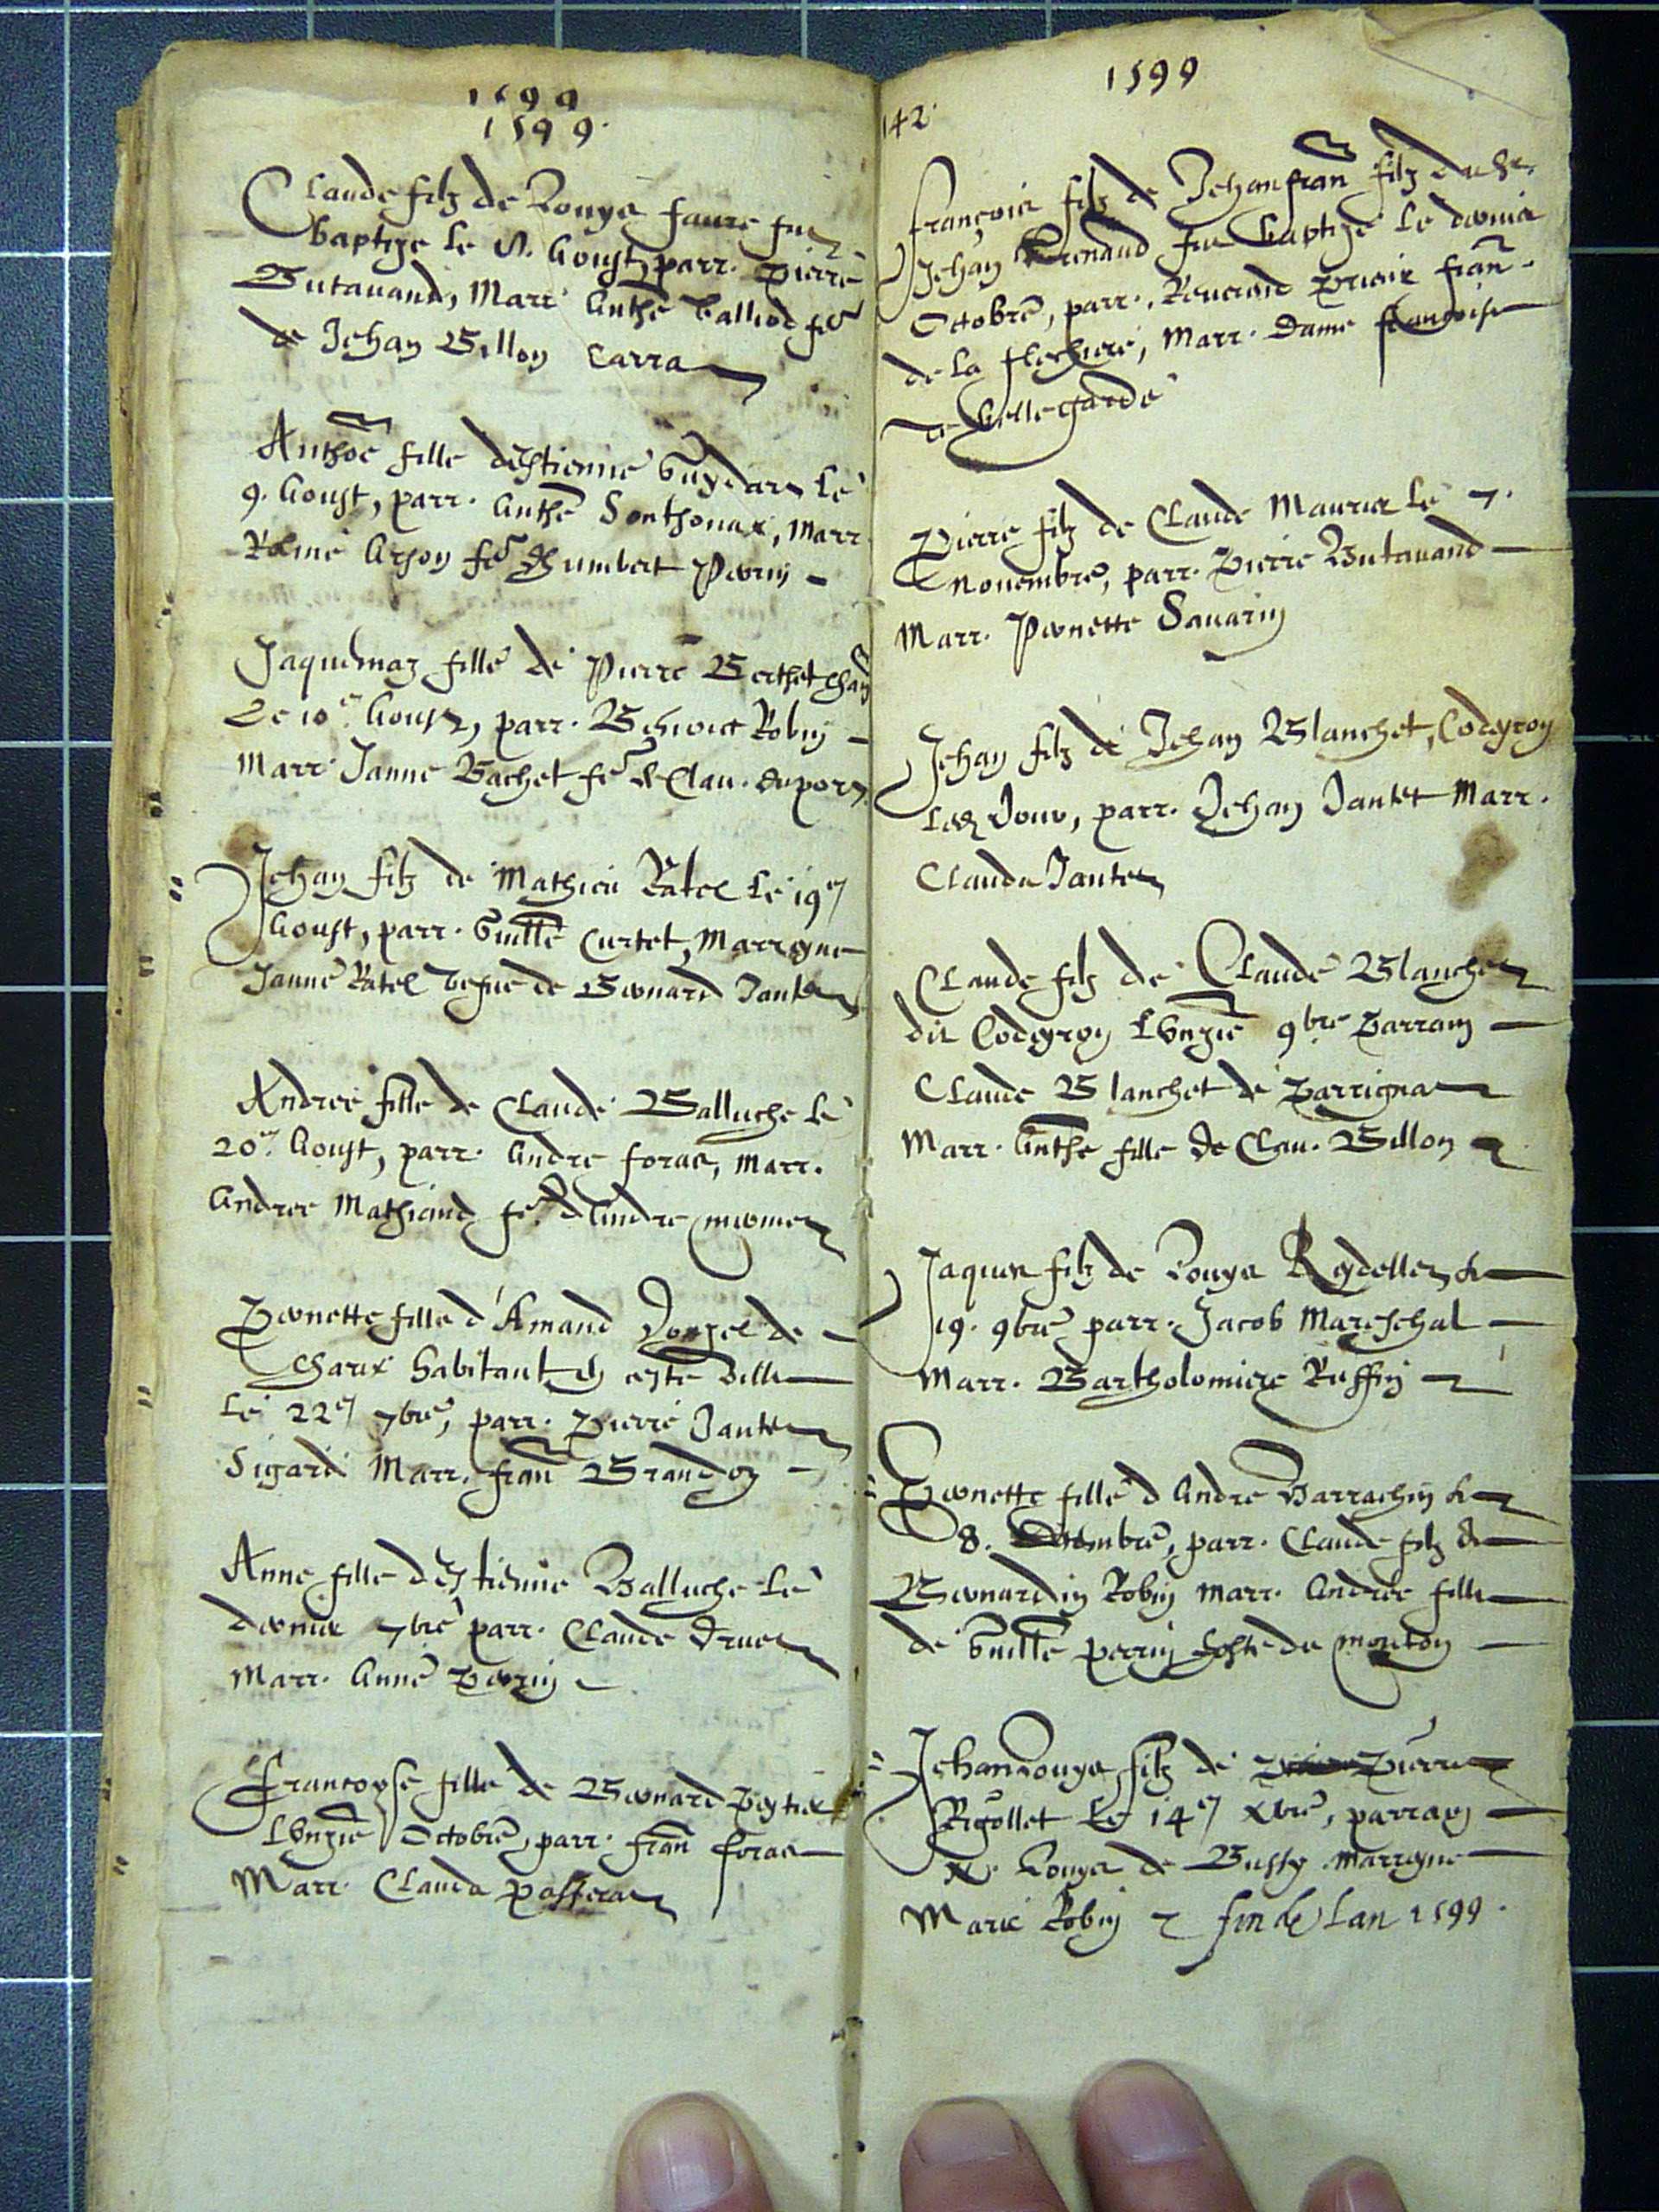 1599
1599.
Claude filz de Louys faure fut
baptize le 8. Aoust, parr. Pierre
Butavand, Marr. Anthe Balliod fe
de Jehan Billon Carra
Anthoe fille d'Estienne Guydars le
9. Aoust, parr. Anthe Sonthonax, Marr.
Arson fe Humbert Perrin
Jaquemaz fille de Pierre Berthet
Le 10e Aoust, parr. Robin
Marr. Janne Bachet fe de Clau. duport
Jehan filz de Mathieu Ratel le 19e
Aoust, parr. Guille Curtet, Marrayne
Janne Ratel vefue de Bernard Jantet
Andree fille de Claude Balluche le
20e Aoust, parr. Andre foras, Marr.
Andree Mathiand fe d'Andre
Pernette fille d'Amand Donzel de
Charix habitant en ceste ville
le 22e 7bre, parr. Pierre Jantet
Sigard Marr. fran Brandon
Anne fille d'Estienne Balluche le
dernier 7bre parr. Claude Druet
Marr. Anne Perrin
Francoyse fille de Bernard
L'Unzie Octobre, parr. fran foras
Marr. Clauda Passerat
142.
1599
françois filz de Jehan fran filz du Sr
Jehan fut baptizé le dernier
Octobre, parr. Reverend Prieur fran.
de la flechiere, Marr. Dame francoise
de Bellegarde
Pierre filz de Claude Maurier le 7.
Novembre, parr. Pierre Butavand
Marr. Pernette Savarin
Jehan filz de Jehan Blanchet, Codgroy
led Jour, parr. Jehan Jantet Marr.
Clauda Jantet
Claude filz de Claude Blanchet
dit Codgroy L'Unzie 9bre Parrain
Claude Blanchet de Parrignat
Marr. Anthe fille de Clau. Billon
Jaques filz de Louys Reydellet le
19. 9bre parr. Jacob Mareschal
Marr. Bartholomiere Ruffin
Pernette fille d'Andre Barrachin le
8. parr. Claude filz de
Bernardin Robin Marr. Andree fille
de Guille Perrin hoste du mouton
Jehan Louys filz de Pierre
Rigollet le 14e Xbre, parrain
Louys de Bussy marrayne
Marie Robin fin de Lan 1599.